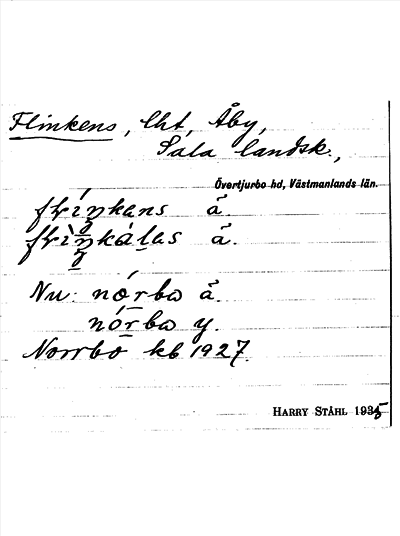 Flinkens, lht, Åby,
Sala landsk.,
Övertjurbo hd, Västmanlands län.
å.
å.
Nu: nǫrbω å.
nǫ́rbω y.
Norrbo kb 1927.
HARRY STÅHL 1935